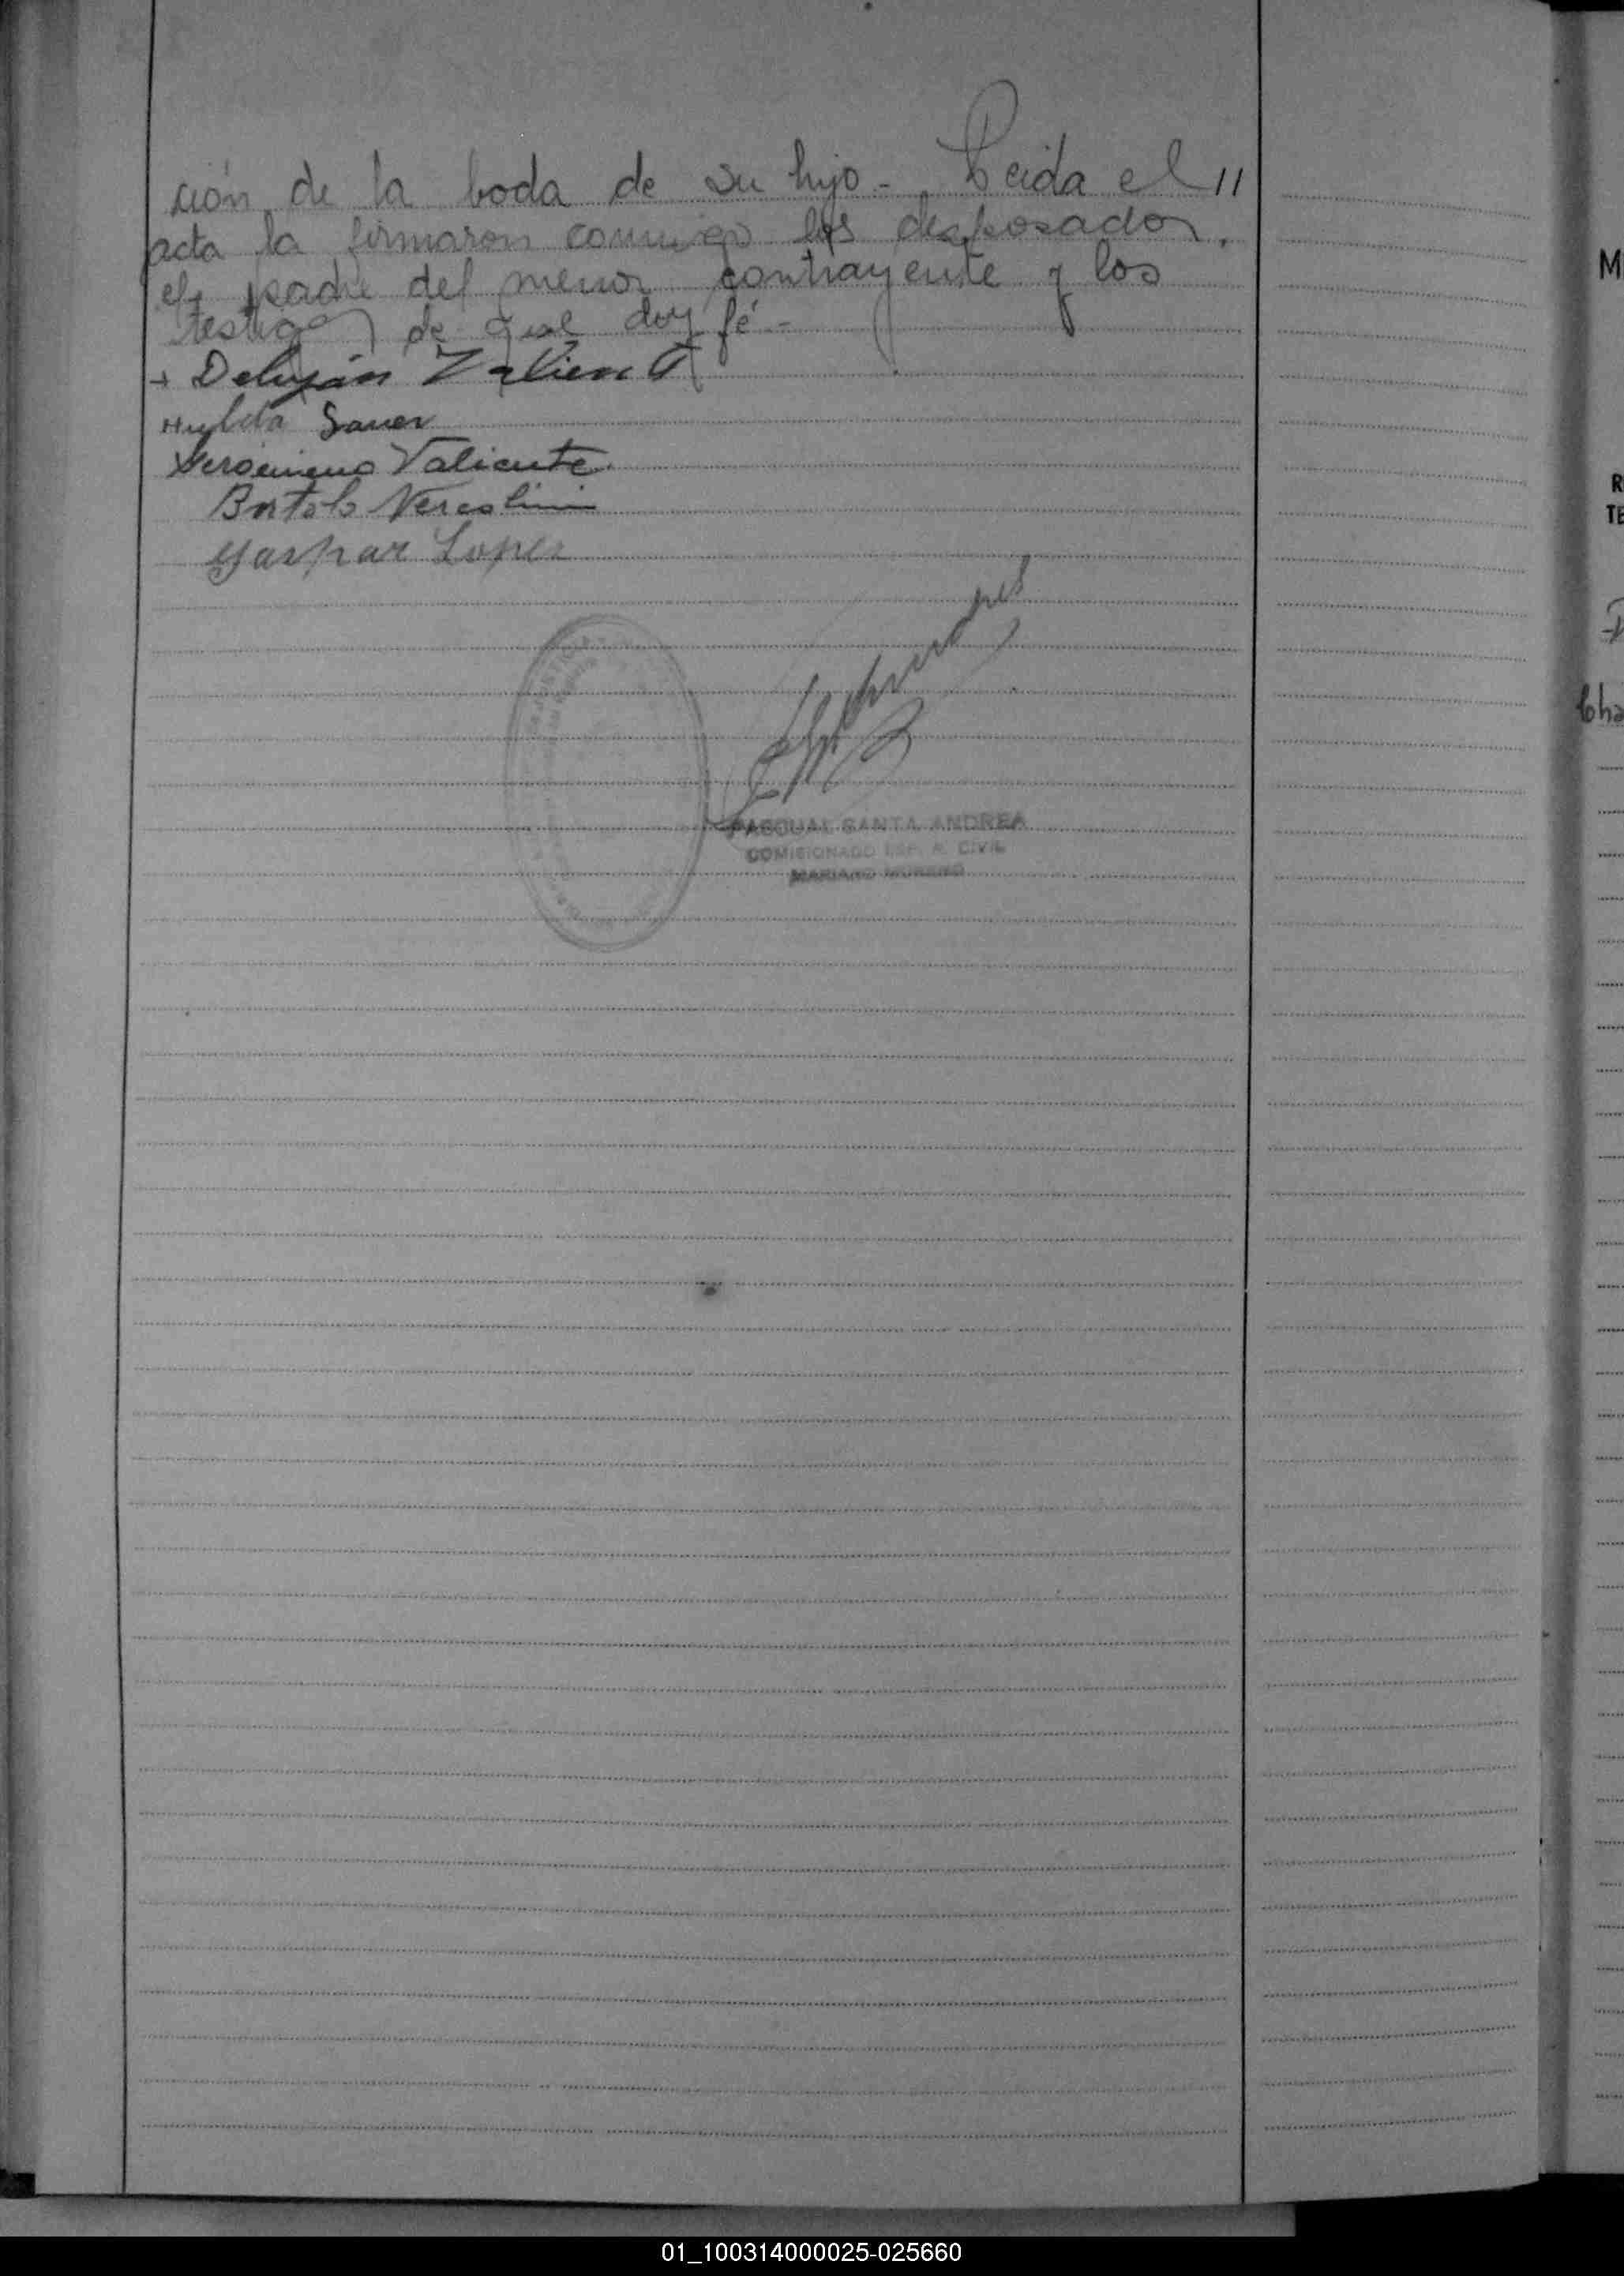 ción de la boda de su hijo-. Leida el //
acta la firmaron conmigo los desposados,
el padre del menor contrayente y los
testigos de que doy fé-
Valiente
Hylda Sauer
Geronimo Valiente
Bortolo
Gaspar Lopez
PASCUAL SANTA ANDREA
COMISIONADO ESP. R. CIVIL
MARIANO MORENO
M
R
TE
Cha
01_100314000025-025660